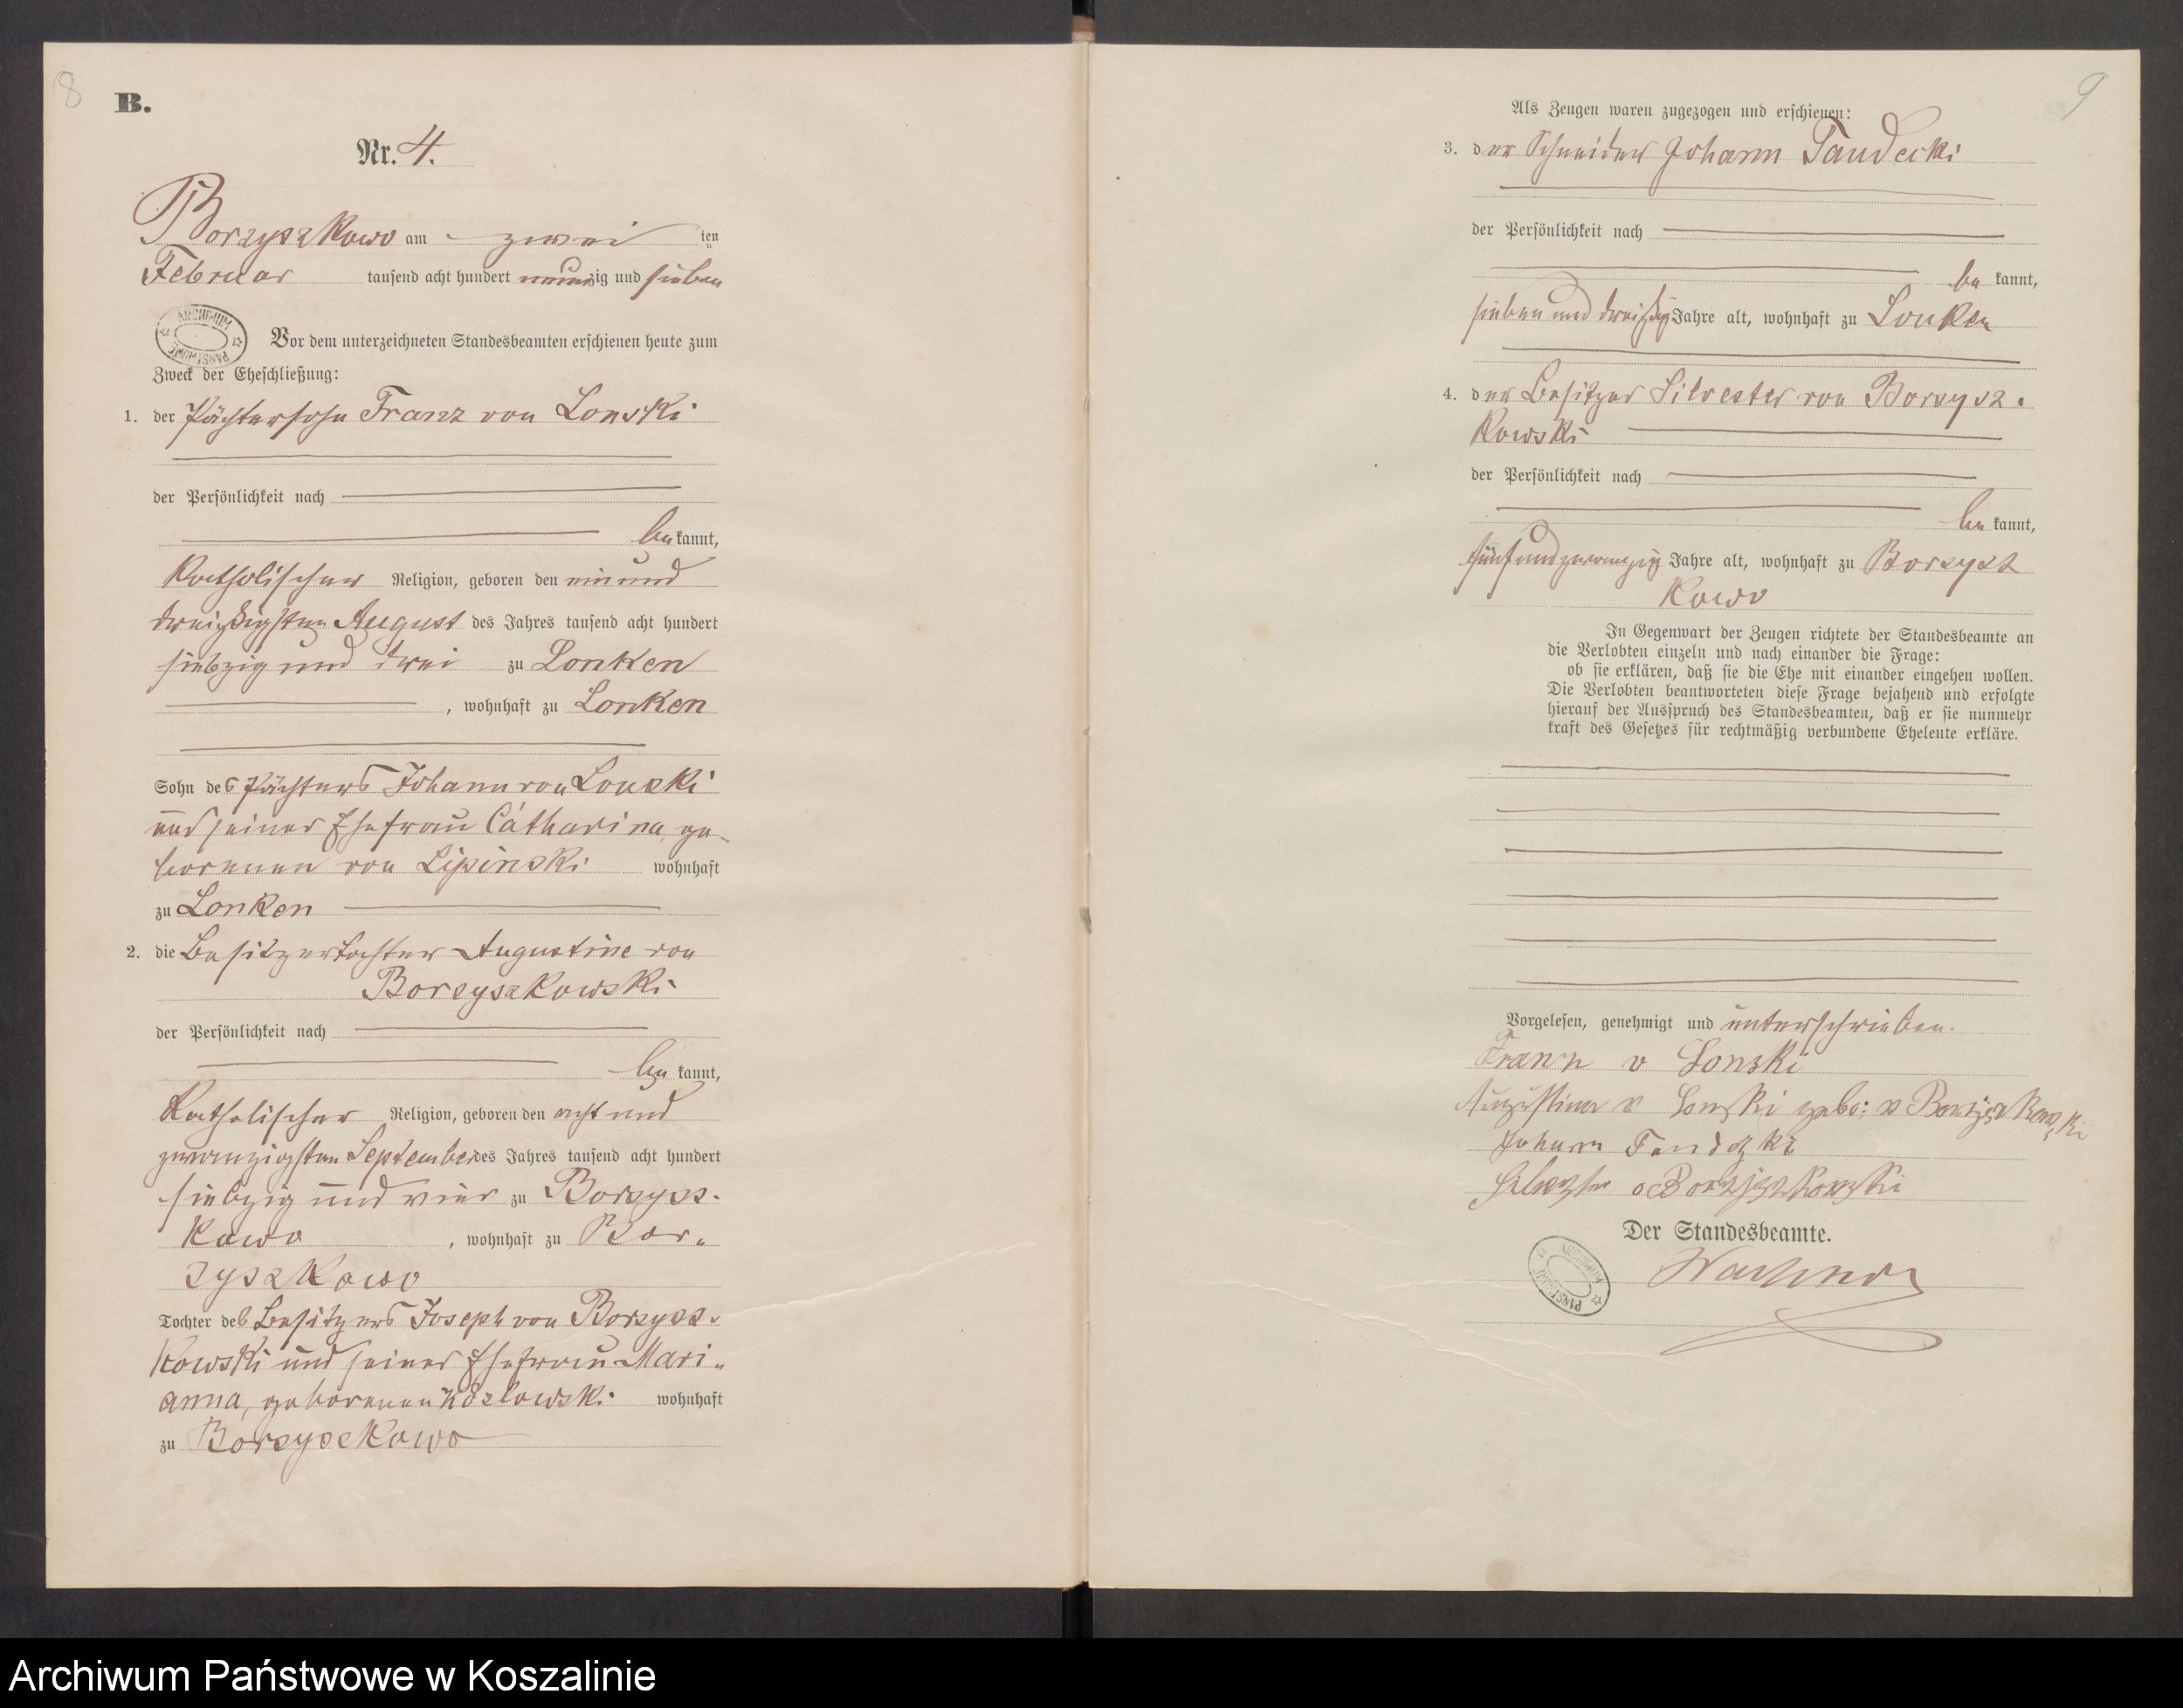 8
B.
Nr. 4.
Borzyszkowo am zwei ten
Februar tausend acht hundert neunzig und sieben
ARCHIWUM PAŃSTWOWE
Vor dem unterzeichneten Standesbeamten erschienen heute zum
Zweck der Eheschließung:
1. der Pächtersohn Franz von Lonski
der Persönlichkeit nach
bekannt,
katholischer Religion, geboren den ein und
dreißigsten August des Jahres tausend acht hundert
siebzig und drei zu Lonken
, wohnhaft zu Lonken
Sohn des Pächters Johann von Lonski
und seiner Ehefrau Catharina ge-
borenen von Lipinski wohnhaft
zu Lonken
2. die Besitzertochter Augustine von
Borzyszkowski
der Persönlichkeit nach
bekannt,
katholischer Religion, geboren den acht und
zwanzigsten September des Jahres tausend acht hundert
siebzig und vier zu Borzysz-
kowo , wohnhaft zu Bor-
zyszkowo
Tochter des Besitzers Joseph von Borzysz-
kowski und seiner Ehefrau Mari-
anna, geborenen Kozlowski wohnhaft
zu Borzyszkowo
9
Als Zeugen waren zugezogen und erschienen:
3. der Schneider Johann Tandecki
der Persönlichkeit nach
bekannt,
sieben und dreißig Jahre alt, wohnhaft zu Lonken
4. der Besitzer Silvester von Borzysz-
kowski
der Persönlichkeit nach
bekannt,
fünf und zwanzig Jahre alt, wohnhaft zu Borzysz
kowo
In Gegenwart der Zeugen richtete der Standesbeamte an
die Verlobten einzeln und nach einander die Frage:
ob sie erklären, daß sie die Ehe mit einander eingehen wollen.
Die Verlobten beantworteten diese Frage bejahend und erfolgte
hierauf der Ausspruch des Standesbeamten, daß er sie nunmehr
kraft des Gesetzes für rechtmäßig verbundene Eheleute erkläre.
Vorgelesen, genehmigt und unterschrieben.
Franz v Lonski
Augustina v Lonski gebo: v Borzyszkowski
Johann Tandezki
v Borzyszkowski
Der Standesbeamte.
ARCHIWUM PAŃSTWOWE
Archiwum Państwowe w Koszalinie